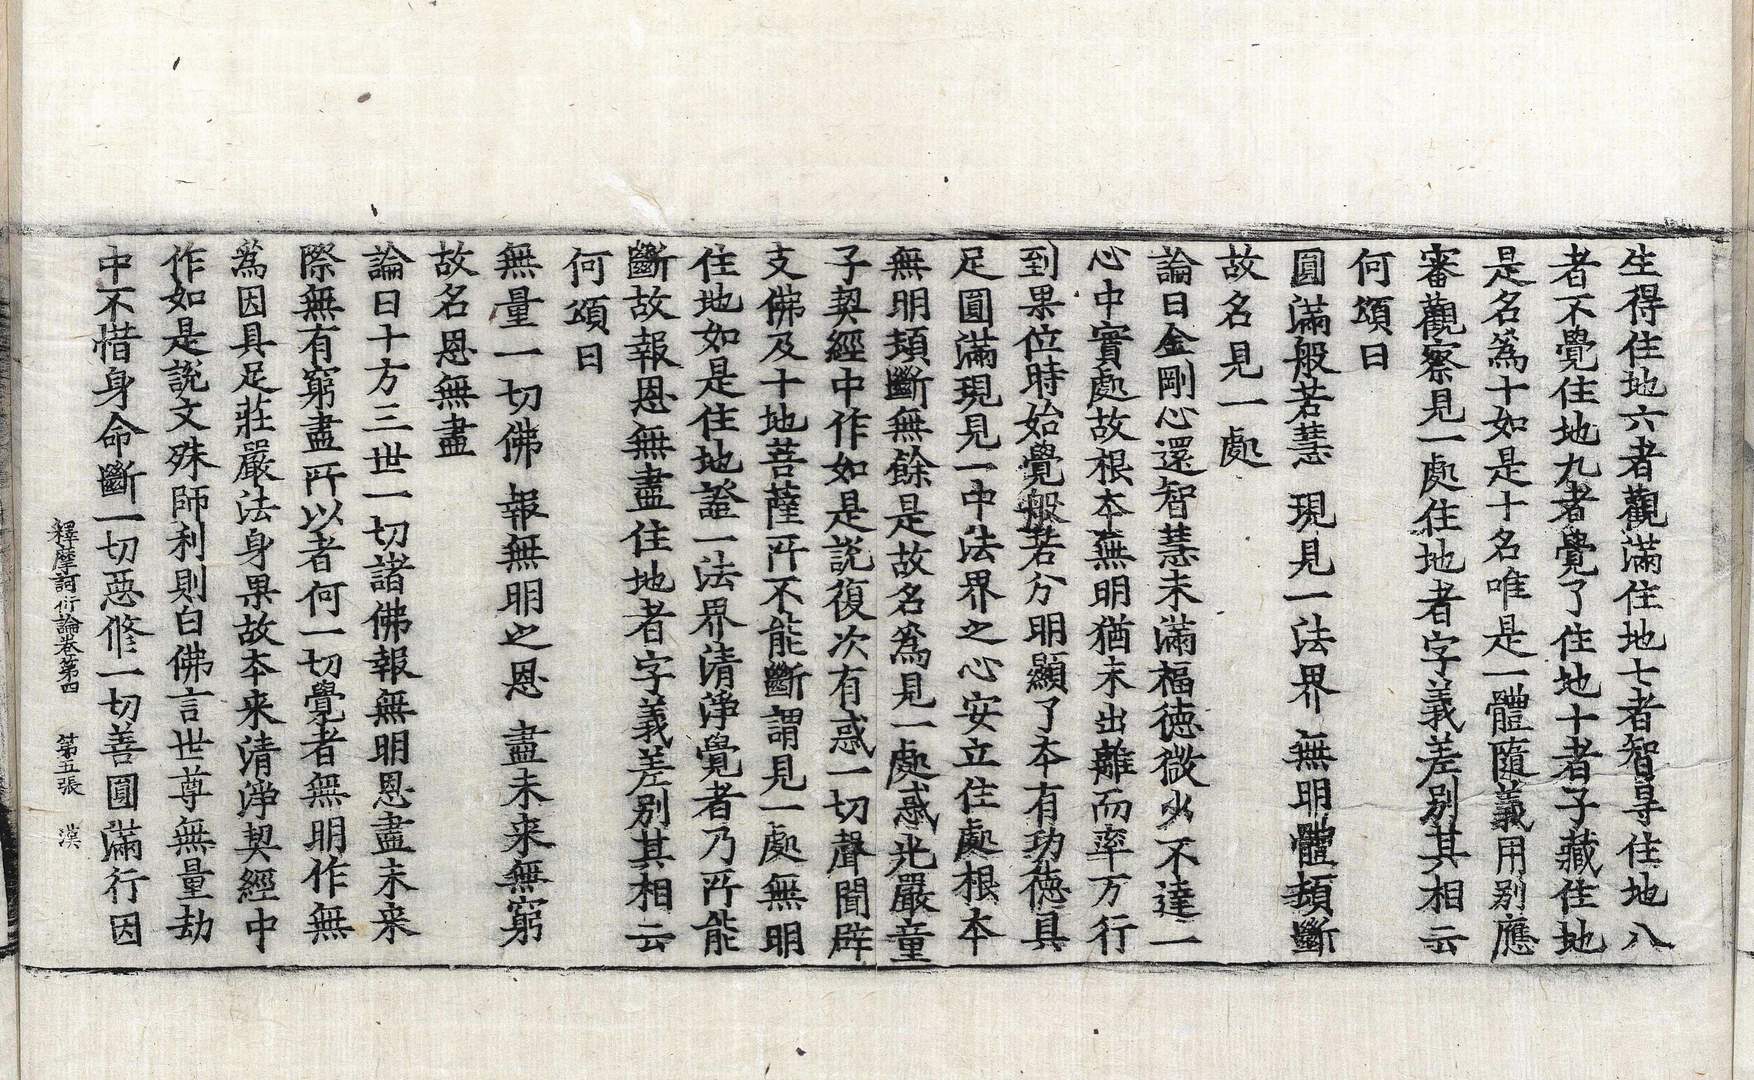 生得住地六者觀滿住地七者智㝵住地八
者不覺住地九者覺了住地十者子藏住地
是名爲十如是十名唯是一體隨義用別應
審觀察見一處住地者字義差別其相云
何頌曰
圓滿般若慧 現見一法界 無明體頓斷
故名見一處
論曰金剛心還智慧未滿福德微少不達一
心中實處故根本無明猶未出離而率方行
到果位時始覺般若分明顯了本有功德具
足圓滿現見一中法界之心安立住處根本
無明頓斷無餘是故名爲見一處惑光嚴童
子契經中作如是說復次有惑一切聲聞辟
支佛及十地菩薩所不能斷謂見一處無明
住地如是住地證一法界清淨覺者乃所能
斷故報恩無盡住地者字義差別其相云
何頌曰
無量一切佛 報無明之恩 盡未来無窮
故名恩無盡
論曰十方三世一切諸佛報無明恩盡未来
際無有窮盡所以者何一切覺者無明作無
爲因具足莊嚴法身果故本来清淨契經中
作如是說文殊師利則白佛言世尊無量劫
中不惜身命斷一切惡修一切善圓滿行因
釋摩訶衍論卷第四 第五張 漢